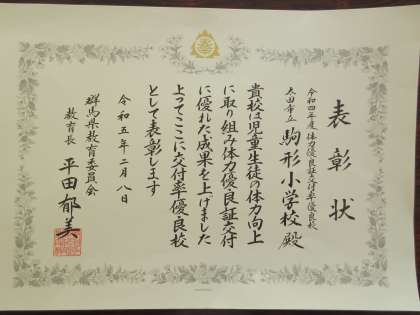 表彰状
令和四年度 体力優良証交付率優良校
太田市立 駒形小学校殿
貴校は児童生徒の体力向上
に取り組み体力優良証交付
に優れた成果を上げました
よってここに交付率優良校
として表彰します
令和五年二月八日
群馬県教育委員会
教育長 平田郁美